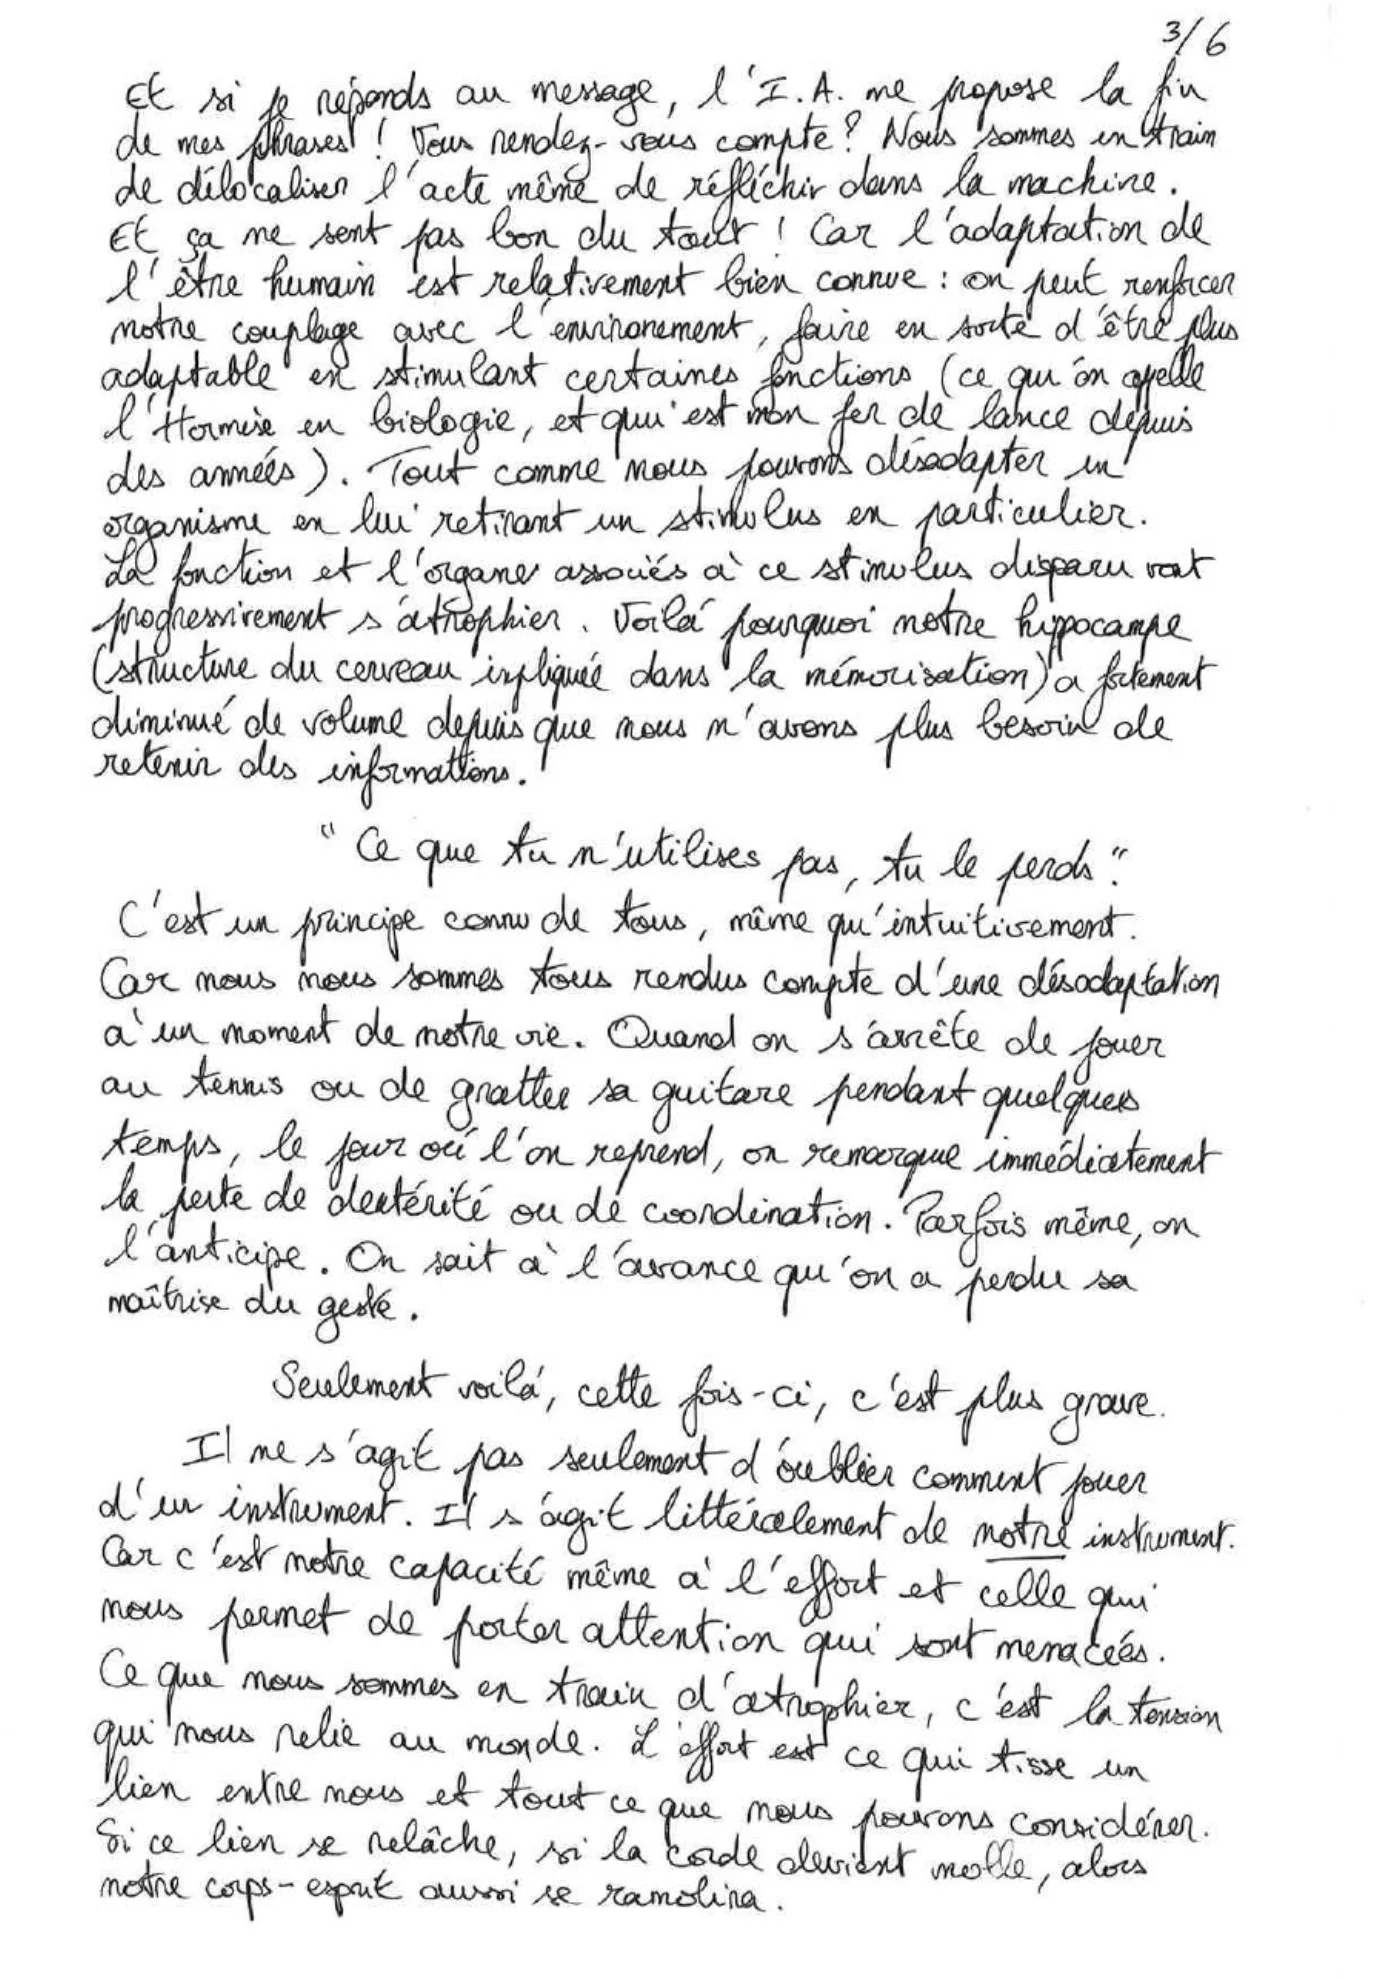 3/6
Et si je réponds au message, l'I.A. me propose la fin
de mes phrases ! Vous rendez-vous compte ? Nous sommes en train
de délocaliser l'acte même de réfléchir dans la machine.
Et ça ne sent pas bon du tout ! Car l'adaptation de
l'être humain est relativement bien connue : on peut renforcer
notre couplage avec l'environement, faire en sorte d'être plus
adaptable en stimulant certaines fonctions (ce qu'on appelle
l'Hormèse en biologie, et qui est mon fer de lance depuis
des années). Tout comme nous pouvons désadapter un
organisme en lui retirant un stimulus en particulier.
La fonction et l'organe associés à ce stimulus disparu vont
progressivement s'atrophier. Voilà pourquoi notre hippocampe
(structure du cerveau impliquée dans la mémorisation) a fortement
diminué de volume depuis que nous n'avons plus besoin de
retenir des informations.
"Ce que tu n'utilises pas, tu le perds."
C'est un principe connu de tous, même qu'intuitivement.
Car nous nous sommes tous rendus compte d'une désadaptation
à un moment de notre vie. Quand on s'arrête de jouer
au tennis ou de gratter sa guitare pendant quelques
temps, le jour où l'on reprend, on remarque immédiatement
la perte de dextérité ou de coordination. Parfois même, on
l'anticipe. On sait à l'avance qu'on a perdu sa
maîtrise du geste.
Seulement voilà, cette fois-ci, c'est plus grave.
Il ne s'agit pas seulement d'oublier comment jouer
d'un instrument. Il s'agit littéralement de notre instrument.
Car c'est notre capacité même à l'effort et celle qui
nous permet de porter attention qui sont menacées.
Ce que nous sommes en train d'atrophier, c'est la tension
qui nous relie au monde. L'effort est ce qui tisse un
lien entre nous et tout ce que nous pouvons considérer.
Si ce lien se relâche, si la corde devient molle, alors
notre corps-esprit aussi se ramolira.